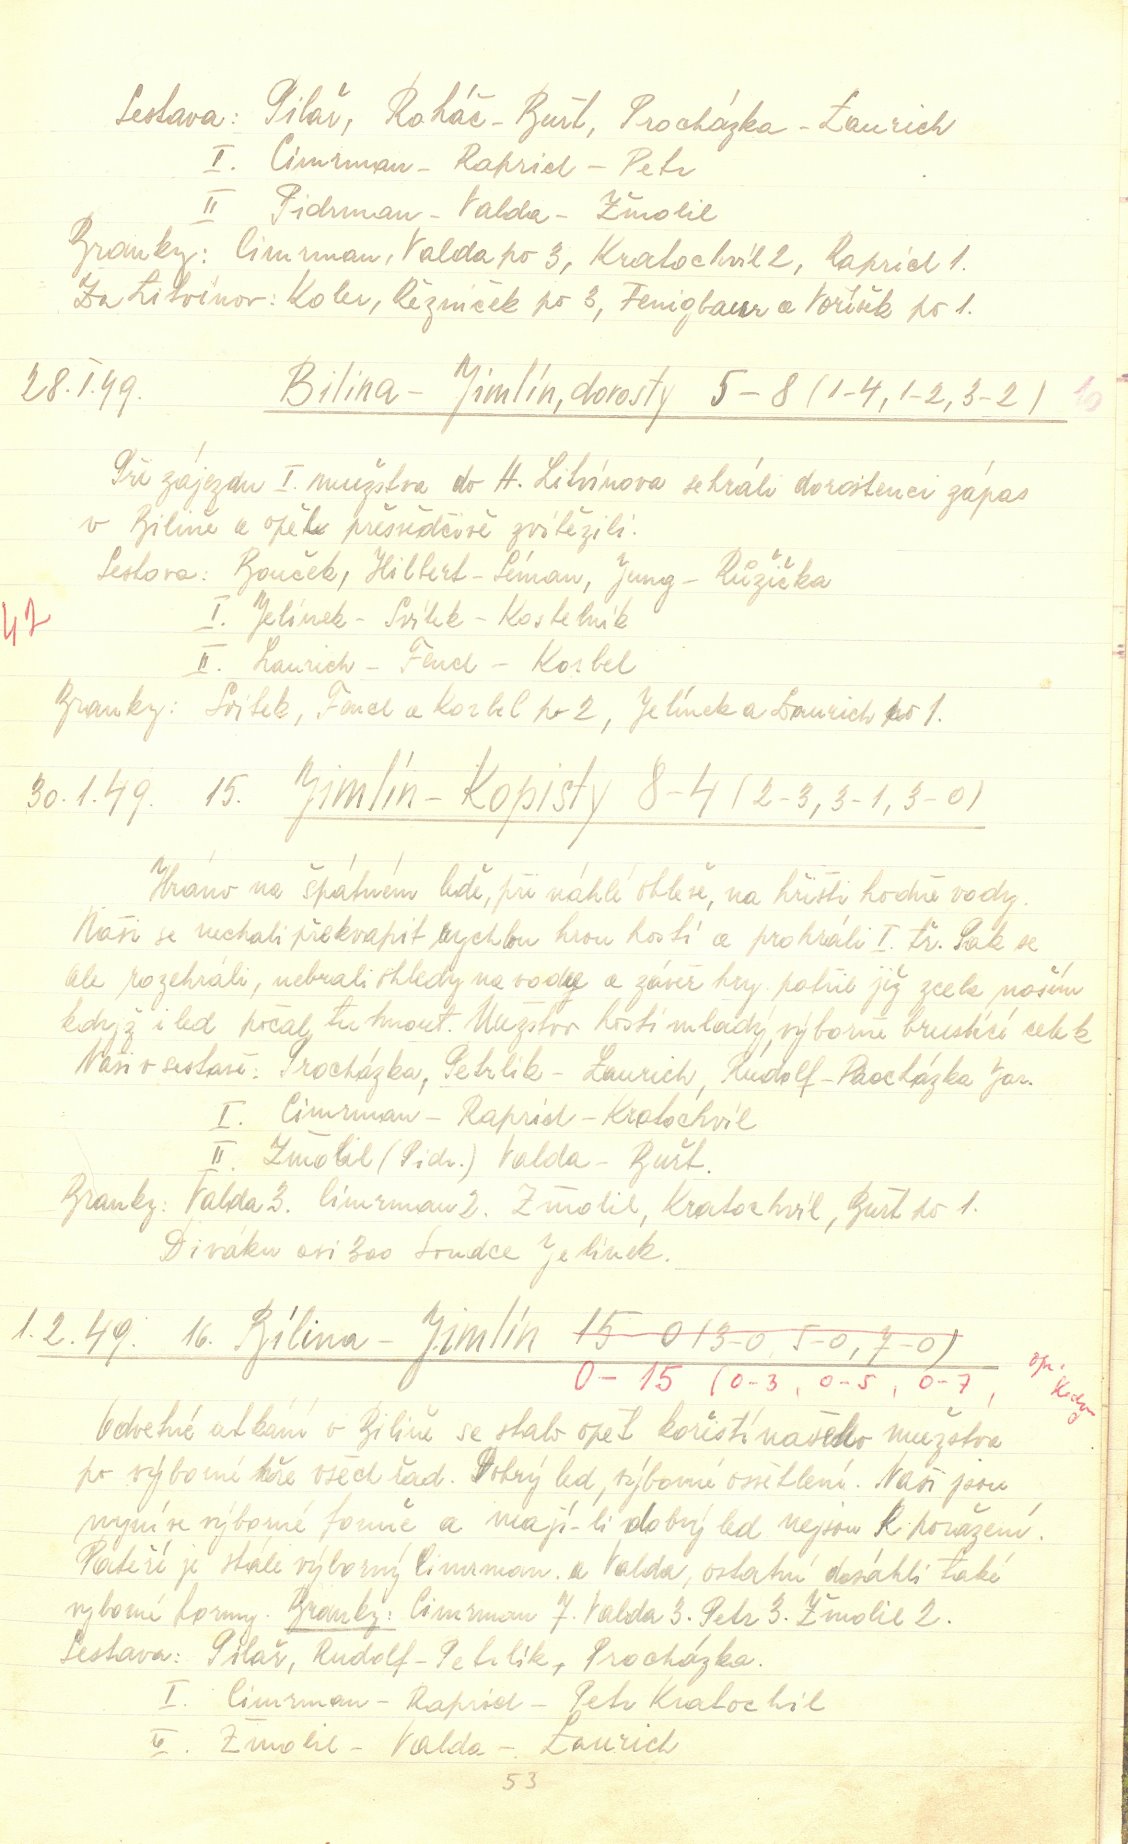 Sestava: Pilař, Roháč - Buřt, Procházka - Laurich
I. Cimrman - Raprid - Petr
II Pidrman - Valda - Žmolil
Branky: Cimrman, Valda po 3, Kratochvíl 2, Raprid 1.
Za Litvínov: Koler, Řezníček po 3, Fenigbauer a Voříšek po 1.
28.I.49. Bílina - Jimlín, dorosty 5 - 8 (1-4, 1-2, 3-2)
Při zájezdu I. mužstva do H. Litvínova sehráli dorostenci zápas
v Bílině a opět přesvědčivě zvítězili.
Sestava: Bouček, Hilbert - Séman, Jung - Růžička
47
I. Jelínek - Svitek - Kostelník
II. Laurich - Fencl - Korbel
Branky: Svitek, Fencl a Korbel po 2, Jelínek a Laurich po 1.
30.1.49. 15. Jimlín - Kopisty 8-4 (2-3, 3-1, 3-0)
Hráno na špatném ledě, při náhlé oblevě, na hřišti hodně vody.
Naši se nechali překvapit rychlou hrou hostí a prohráli I. tř. Pak se
ale rozehráli, nebrali ohledy na vody a závěr hry patřil již zcela našim
když i led počal tuhnout. Mužstvo hostí mladý, výborně bruslící celek
Naši v sestavě: Procházka, Petrlík - Laurich, Rudolf - Procházka Jar.
I. Cimrman - Raprid - Kratochvíl
II. Žmolil (Pidr.) Valda - Buřt.
Branky: Valda 3. Cimrman 2. Žmolil, Kratochvíl, Buřt po 1.
Diváků asi 300 Soudce Jelínek.
1.2.49. 16. Bílina - Jimlín 15-0 (3-0, 5-0, 7-0)
0-15 (0-3, 0-5, 0-7,
opr.
Odvetné utkání v Bílině se stalo opět kořistí našeho mužstva
po výborné hře všech řad. Dobrý led, výborné osvětlení. Naši jsou
nyní ve výborné formě a mají-li dobrý led nejsou k poražení.
Páteří je stále výborný Cimrman. a Valda, ostatní dosáhli také
výborné formy. Branky: Cimrman 7. Valda 3. Petr 3. Žmolil 2.
Sestava: Pilař, Rudolf - Petrlík, Procházka.
I. Cimrman - Raprid - Petr Kratochvíl
II. Žmolil - Valda - Laurich
53